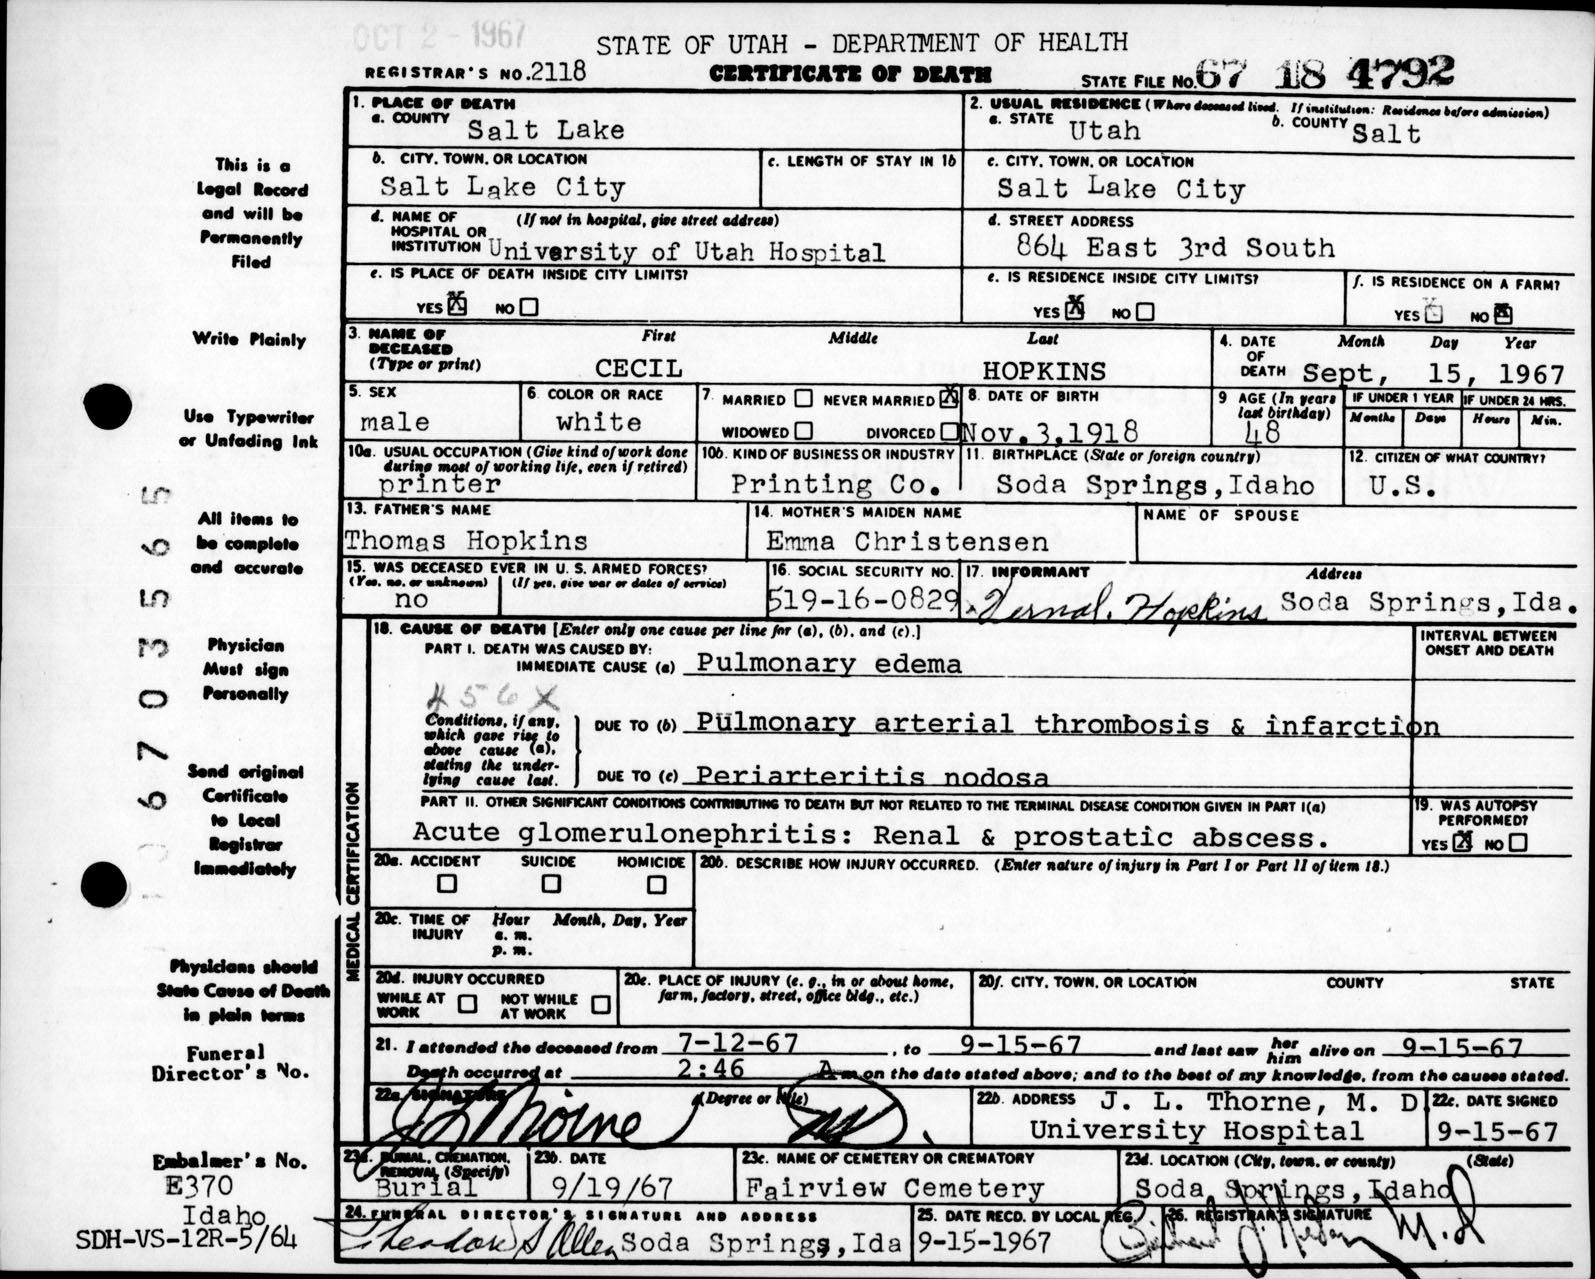 OCT 2 - 1967
STATE OF UTAH - DEPARTMENT OF HEALTH
REGISTRAR'S NO. 2118
CERTIFICATE OF DEATH
STATE FILE NO. 67 18 4792
This is a
Legal Record
and will be
Permanently
Filed
Write Plainly
Use Typewriter
or Unfading Ink
All items to
be complete
and accurate
Physician
Must sign
Personally
Send original
Certificate
to Local
Registrar
Immediately
Physicians should
State Cause of Death
in plain terms
Funeral
Director's No.
Embalmer's No.
E370
Idaho
SDH-VS-12R-5/64
6703 5565
1. PLACE OF DEATH
a. COUNTY Salt Lake
2. USUAL RESIDENCE (Where deceased lived. If institution: Residence before admission)
a. STATE Utah b. COUNTY Salt
b. CITY, TOWN, OR LOCATION Salt Lake City
c. LENGTH OF STAY IN 1b
c. CITY, TOWN, OR LOCATION Salt Lake City
d. NAME OF (If not in hospital, give street address)
HOSPITAL OR
INSTITUTION University of Utah Hospital
d. STREET ADDRESS
864 East 3rd South
e. IS PLACE OF DEATH INSIDE CITY LIMITS?
YES X NO
e. IS RESIDENCE INSIDE CITY LIMITS?
YES X NO
f. IS RESIDENCE ON A FARM?
YES NO X
3. NAME OF First Middle Last
DECEASED
(Type or print) CECIL HOPKINS
4. DATE Month Day Year
OF
DEATH Sept, 15, 1967
5. SEX
male
6. COLOR OR RACE
white
7. MARRIED NEVER MARRIED X
WIDOWED DIVORCED
8. DATE OF BIRTH
Nov.3,1918
9 AGE (In years
last birthday)
48
IF UNDER 1 YEAR IF UNDER 24 HRS.
Months Days Hours Min.
10a. USUAL OCCUPATION (Give kind of work done
during most of working life, even if retired)
printer
10b. KIND OF BUSINESS OR INDUSTRY
Printing Co.
11. BIRTHPLACE (State or foreign country)
Soda Springs,Idaho
12. CITIZEN OF WHAT COUNTRY?
U.S.
13. FATHER'S NAME
Thomas Hopkins
14. MOTHER'S MAIDEN NAME
Emma Christensen
NAME OF SPOUSE
15. WAS DECEASED EVER IN U. S. ARMED FORCES?
(Yes, no, or unknown) (If yes, give war or dates of service)
no
16. SOCIAL SECURITY NO.
519-16-0829
17. INFORMANT Address
Vernal. Hopkins Soda Springs,Ida.
MEDICAL CERTIFICATION
18. CAUSE OF DEATH [Enter only one cause per line for (a), (b), and (c).]
INTERVAL BETWEEN
ONSET AND DEATH
PART I. DEATH WAS CAUSED BY:
IMMEDIATE CAUSE (a) Pulmonary edema
456X
Conditions, if any,
which gave rise to
above cause (a),
stating the under-
lying cause last.
DUE TO (b) Pulmonary arterial thrombosis & infarction
DUE TO (c) Periarteritis nodosa
PART II. OTHER SIGNIFICANT CONDITIONS CONTRIBUTING TO DEATH BUT NOT RELATED TO THE TERMINAL DISEASE CONDITION GIVEN IN PART I(a)
Acute glomerulonephritis: Renal & prostatic abscess.
19. WAS AUTOPSY
PERFORMED?
YES X NO
20a. ACCIDENT SUICIDE HOMICIDE
20b. DESCRIBE HOW INJURY OCCURRED. (Enter nature of injury in Part I or Part II of item 18.)
20c. TIME OF Hour Month, Day, Year
INJURY a. m.
p. m.
20d. INJURY OCCURRED
WHILE AT WORK NOT WHILE AT WORK
20e. PLACE OF INJURY (e. g., in or about home,
farm, factory, street, office bldg., etc.)
20f. CITY, TOWN, OR LOCATION COUNTY STATE
21. I attended the deceased from 7-12-67, to 9-15-67 and last saw her him alive on 9-15-67
Death occurred at 2:46 A m on the date stated above; and to the best of my knowledge, from the causes stated.
22a. SIGNATURE (Degree or title)
J L Thorne MD.
22b. ADDRESS J. L. Thorne, M. D
University Hospital
22c. DATE SIGNED
9-15-67
23a. BURIAL, CREMATION,
REMOVAL (Specify)
Burial
23b. DATE
9/19/67
23c. NAME OF CEMETERY OR CREMATORY
Fairview Cemetery
23d. LOCATION (City, town, or county) (State)
Soda Springs,Idaho
24. FUNERAL DIRECTOR'S SIGNATURE AND ADDRESS
Theodore S Allen Soda Springs,Ida
25. DATE RECD. BY LOCAL REG.
9-15-1967
26. REGISTRAR'S SIGNATURE
M.D